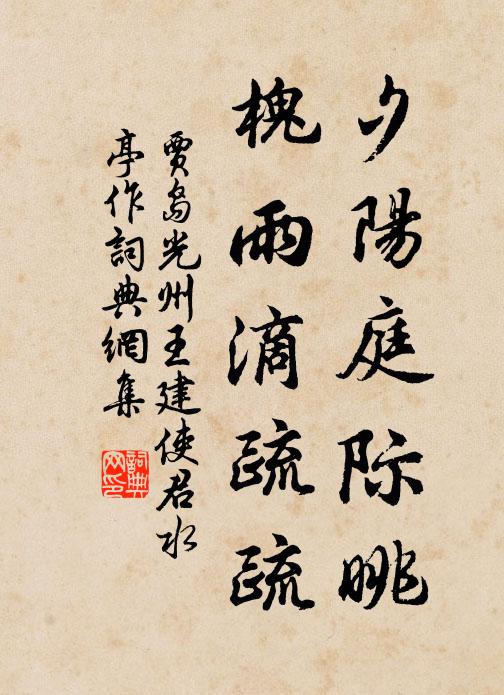 夕陽庭际眺
槐雨滴疏疏
賈島光州王建使君水
亭作詞典網集
詞典網印